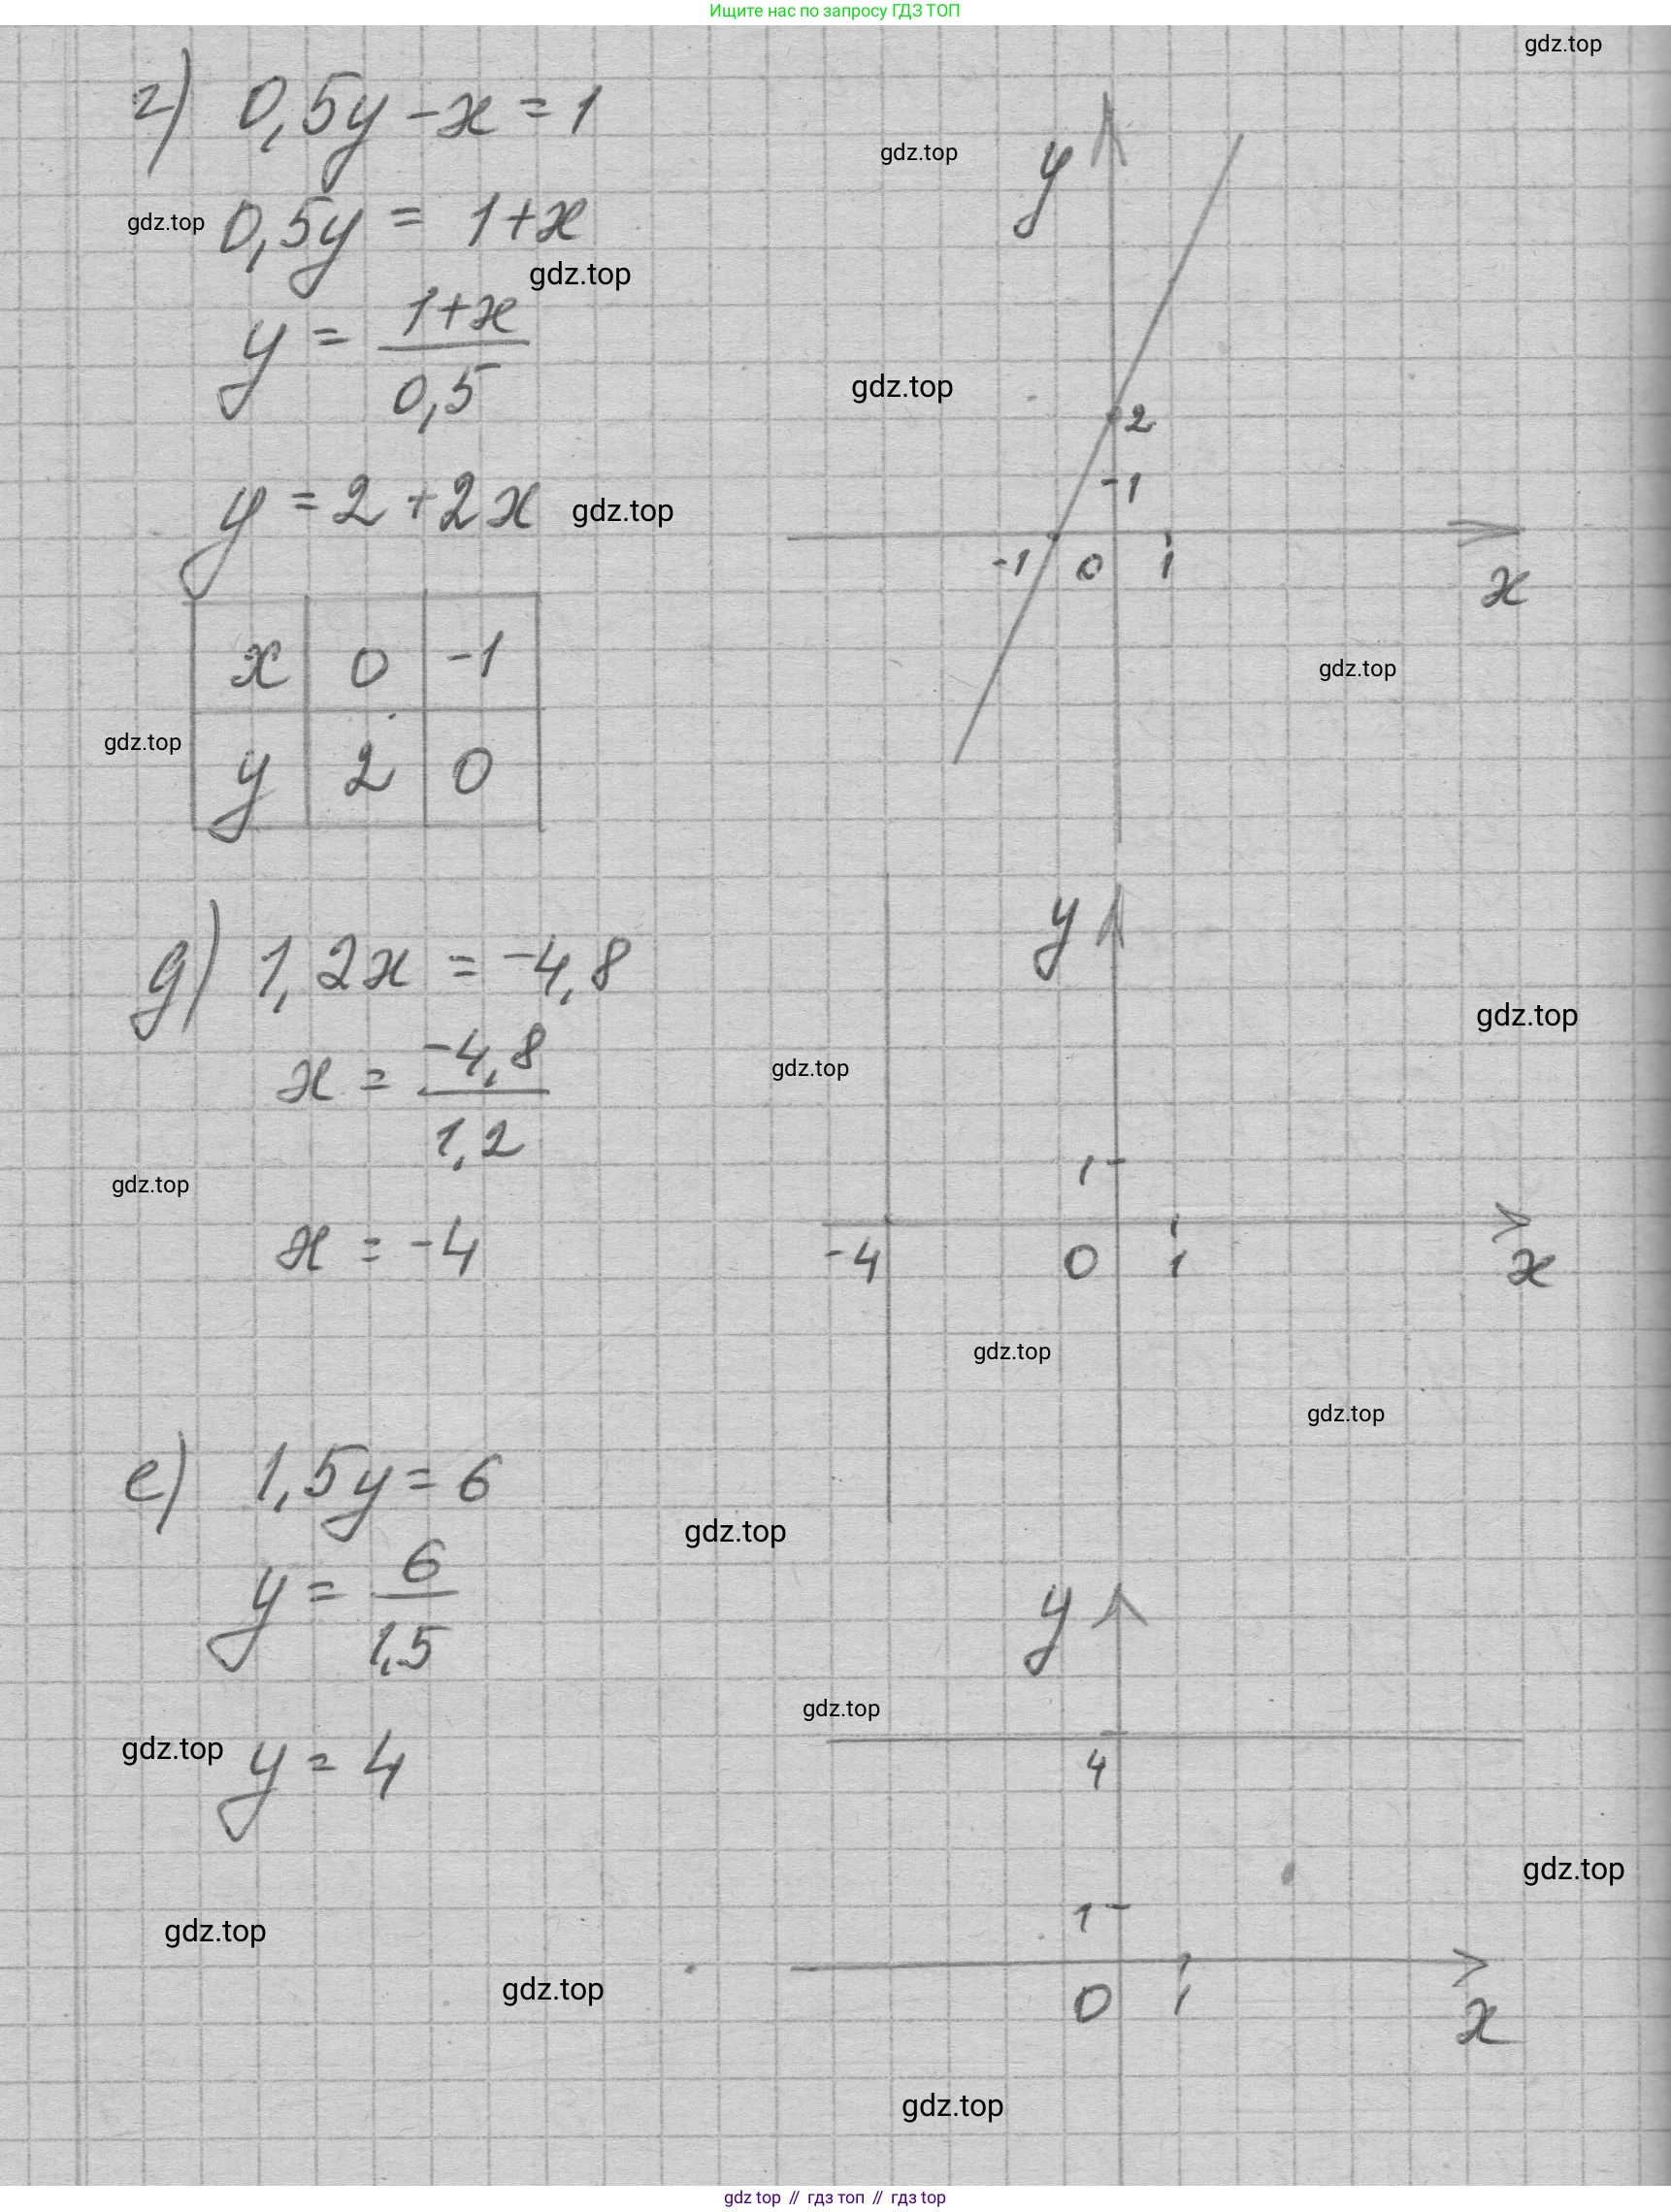 Ищите нас по запросу ГДЗ ТОП
gdz.top
г) 0,5y - x = 1
gdz.top
gdz.top
0,5y = 1+x
gdz.top
y = 1+x / 0,5
gdz.top
y = 2 + 2x
gdz.top
x 0 -1
y 2 0
gdz.top
y
2
1
-1 0 1
x
gdz.top
д) 1,2x = -4,8
x = -4,8 / 1,2
gdz.top
x = -4
y
gdz.top
gdz.top
1
-4 0 1
x
gdz.top
gdz.top
е) 1,5y = 6
gdz.top
y = 6 / 1,5
gdz.top
y = 4
y
gdz.top
4
gdz.top
gdz.top
1
0 1
x
gdz.top
gdz.top
gdz top // гдз топ // гдз top